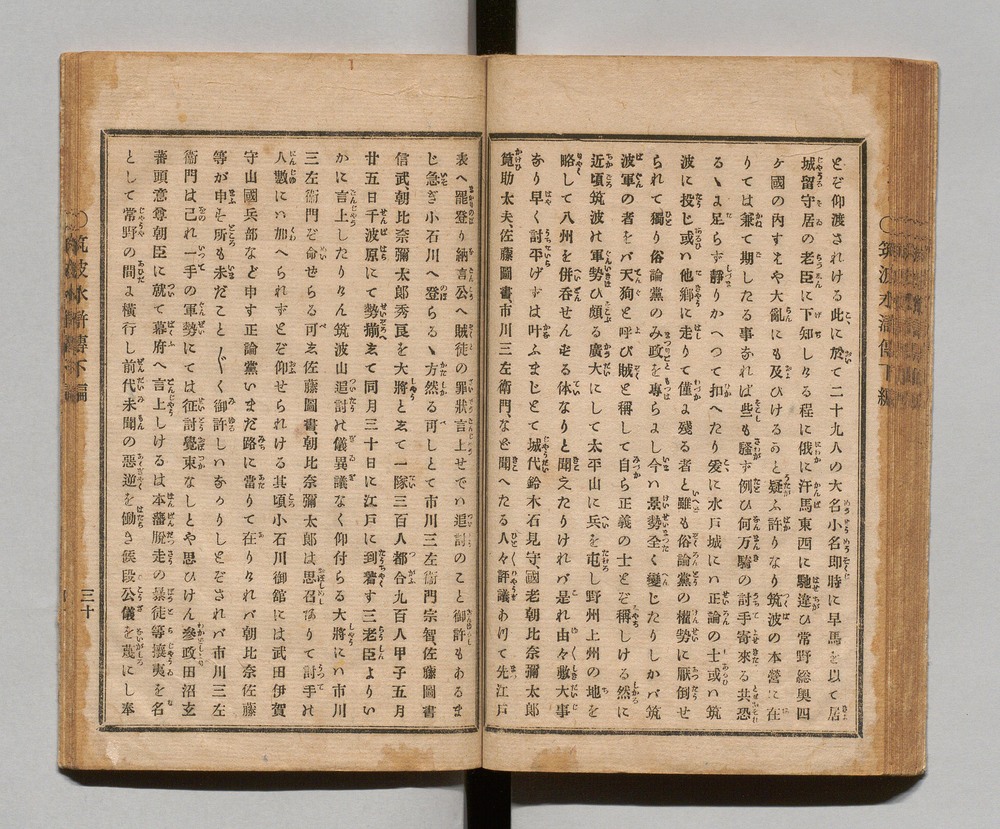 とぞ仰渡されける此に於て二十九人の大名小名即時に早馬を以て居
城留守居の老臣に下知しける程に俄に汗馬東西に馳違ひ常野総奥四
ケ國の内すはや大亂にも及ひけるかと疑ふ許りなり筑波の本營に在
りては兼て期したる事なれば些も騒ず例ひ何万騎の討手寄來る共恐
るゝに足らず靜りかへつて扣へたり爰に水戸城にハ正論の士或ハ筑
波に投じ或ハ他郷に走りて僅に殘る者と雖も俗論黨の權勢に厭倒せ
られて獨り俗論黨のみ政を專らにし今ハ景勢全く變じたりしかバ筑
波軍の者をバ天狗と呼び賊と稱して自ら正義の士とぞ稱しける然に
近頃筑波は軍勢ひ頗る廣大にして太平山に兵を屯し野州上州の地を
略して八州を併呑せんずる体なりと聞えたりけれバ是れ由々敷大事
なり早く討平げずは叶ふまじとて城代鈴木石見守、國老朝比奈彌太郎
筧助太夫、佐藤圖書、市川三左衞門、など聞へたる人々評議ありて先江戸
表へ罷登り納言公へ賊徒の罪狀言上せでハ追討のこと御許もあるま
じ急ぎ小石川へ登らるゝ方然る可しとて市川三左衞門宗智佐藤圖書
信武、朝比奈彌太郎秀良を大將として一隊三百人都合九百人甲子五月
廿五日千波原にて勢揃えて同月三十日に江戸に到着す三老臣よりい
かに言上したりけん筑波山追討の儀異議なく仰付らる大將にハ市川
三左衞門ぞ命せらる可き佐藤圖書朝比奈彌太郎は思召ありて討手の
人數にハ加へられずとぞ仰せられける其頃小石川御館には武田伊賀
守山國兵部など申す正論黨いまだ路に當りて在りけれバ朝比奈佐藤
等が申す所も未だこと〴〵く御許しハなかりしとぞされバ市川三左
衞門は己れ一手の軍勢にては征討覺束なしとや思ひけん參政田沼玄
蕃頭意尊朝臣に就て幕府へ言上しけるは本藩脱走の暴徒等攘夷を名
として常野の間に横行し前代未聞の惡逆を働き候段公儀を蔑にし奉
筑波水滸傳下編
三十